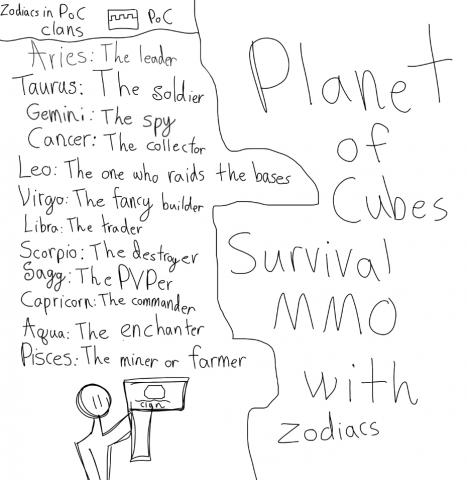 Zodiacs in PoC
clans
PoC
Aries: The leader
Taurus: The soldier
Gemini: The spy
Cancer: The collector
Leo: The one who raids the bases
Virgo: The fancy builder
Libra: The trader
Scorpio: The destroyer
Sagg: The PVPer
Capricorn: The commander
Aqua: The enchanter
Pisces: The miner or farmer
clan
Planet
of
Cubes
Survival
MMO
with
zodiacs